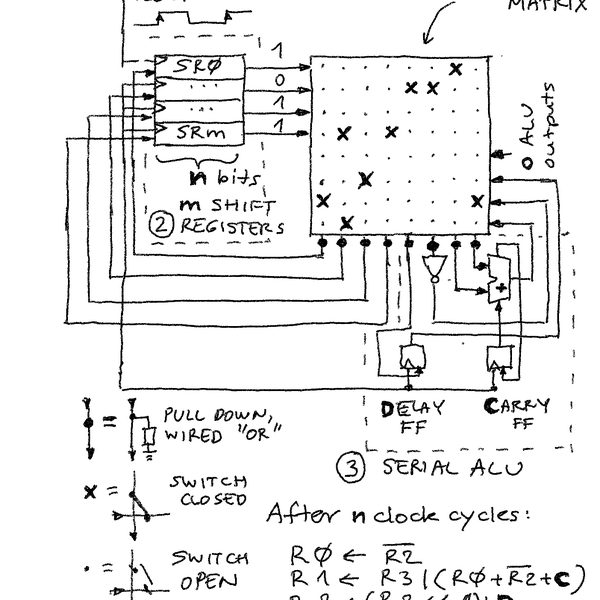 MATRIX
1
SRØ
0
...
1
SRm
1
0 ALU
outputs
n bits
m SHIFT
② REGISTERS
+
DELAY
FF
CARRY
FF
③ SERIAL ALU
● = PULL DOWN,
WIRED "OR"
x = SWITCH
CLOSED
· = SWITCH
OPEN
After n clock cycles:
RØ ← R̅2̅
R1 ← R3 | (RØ + R̅2̅ + C)